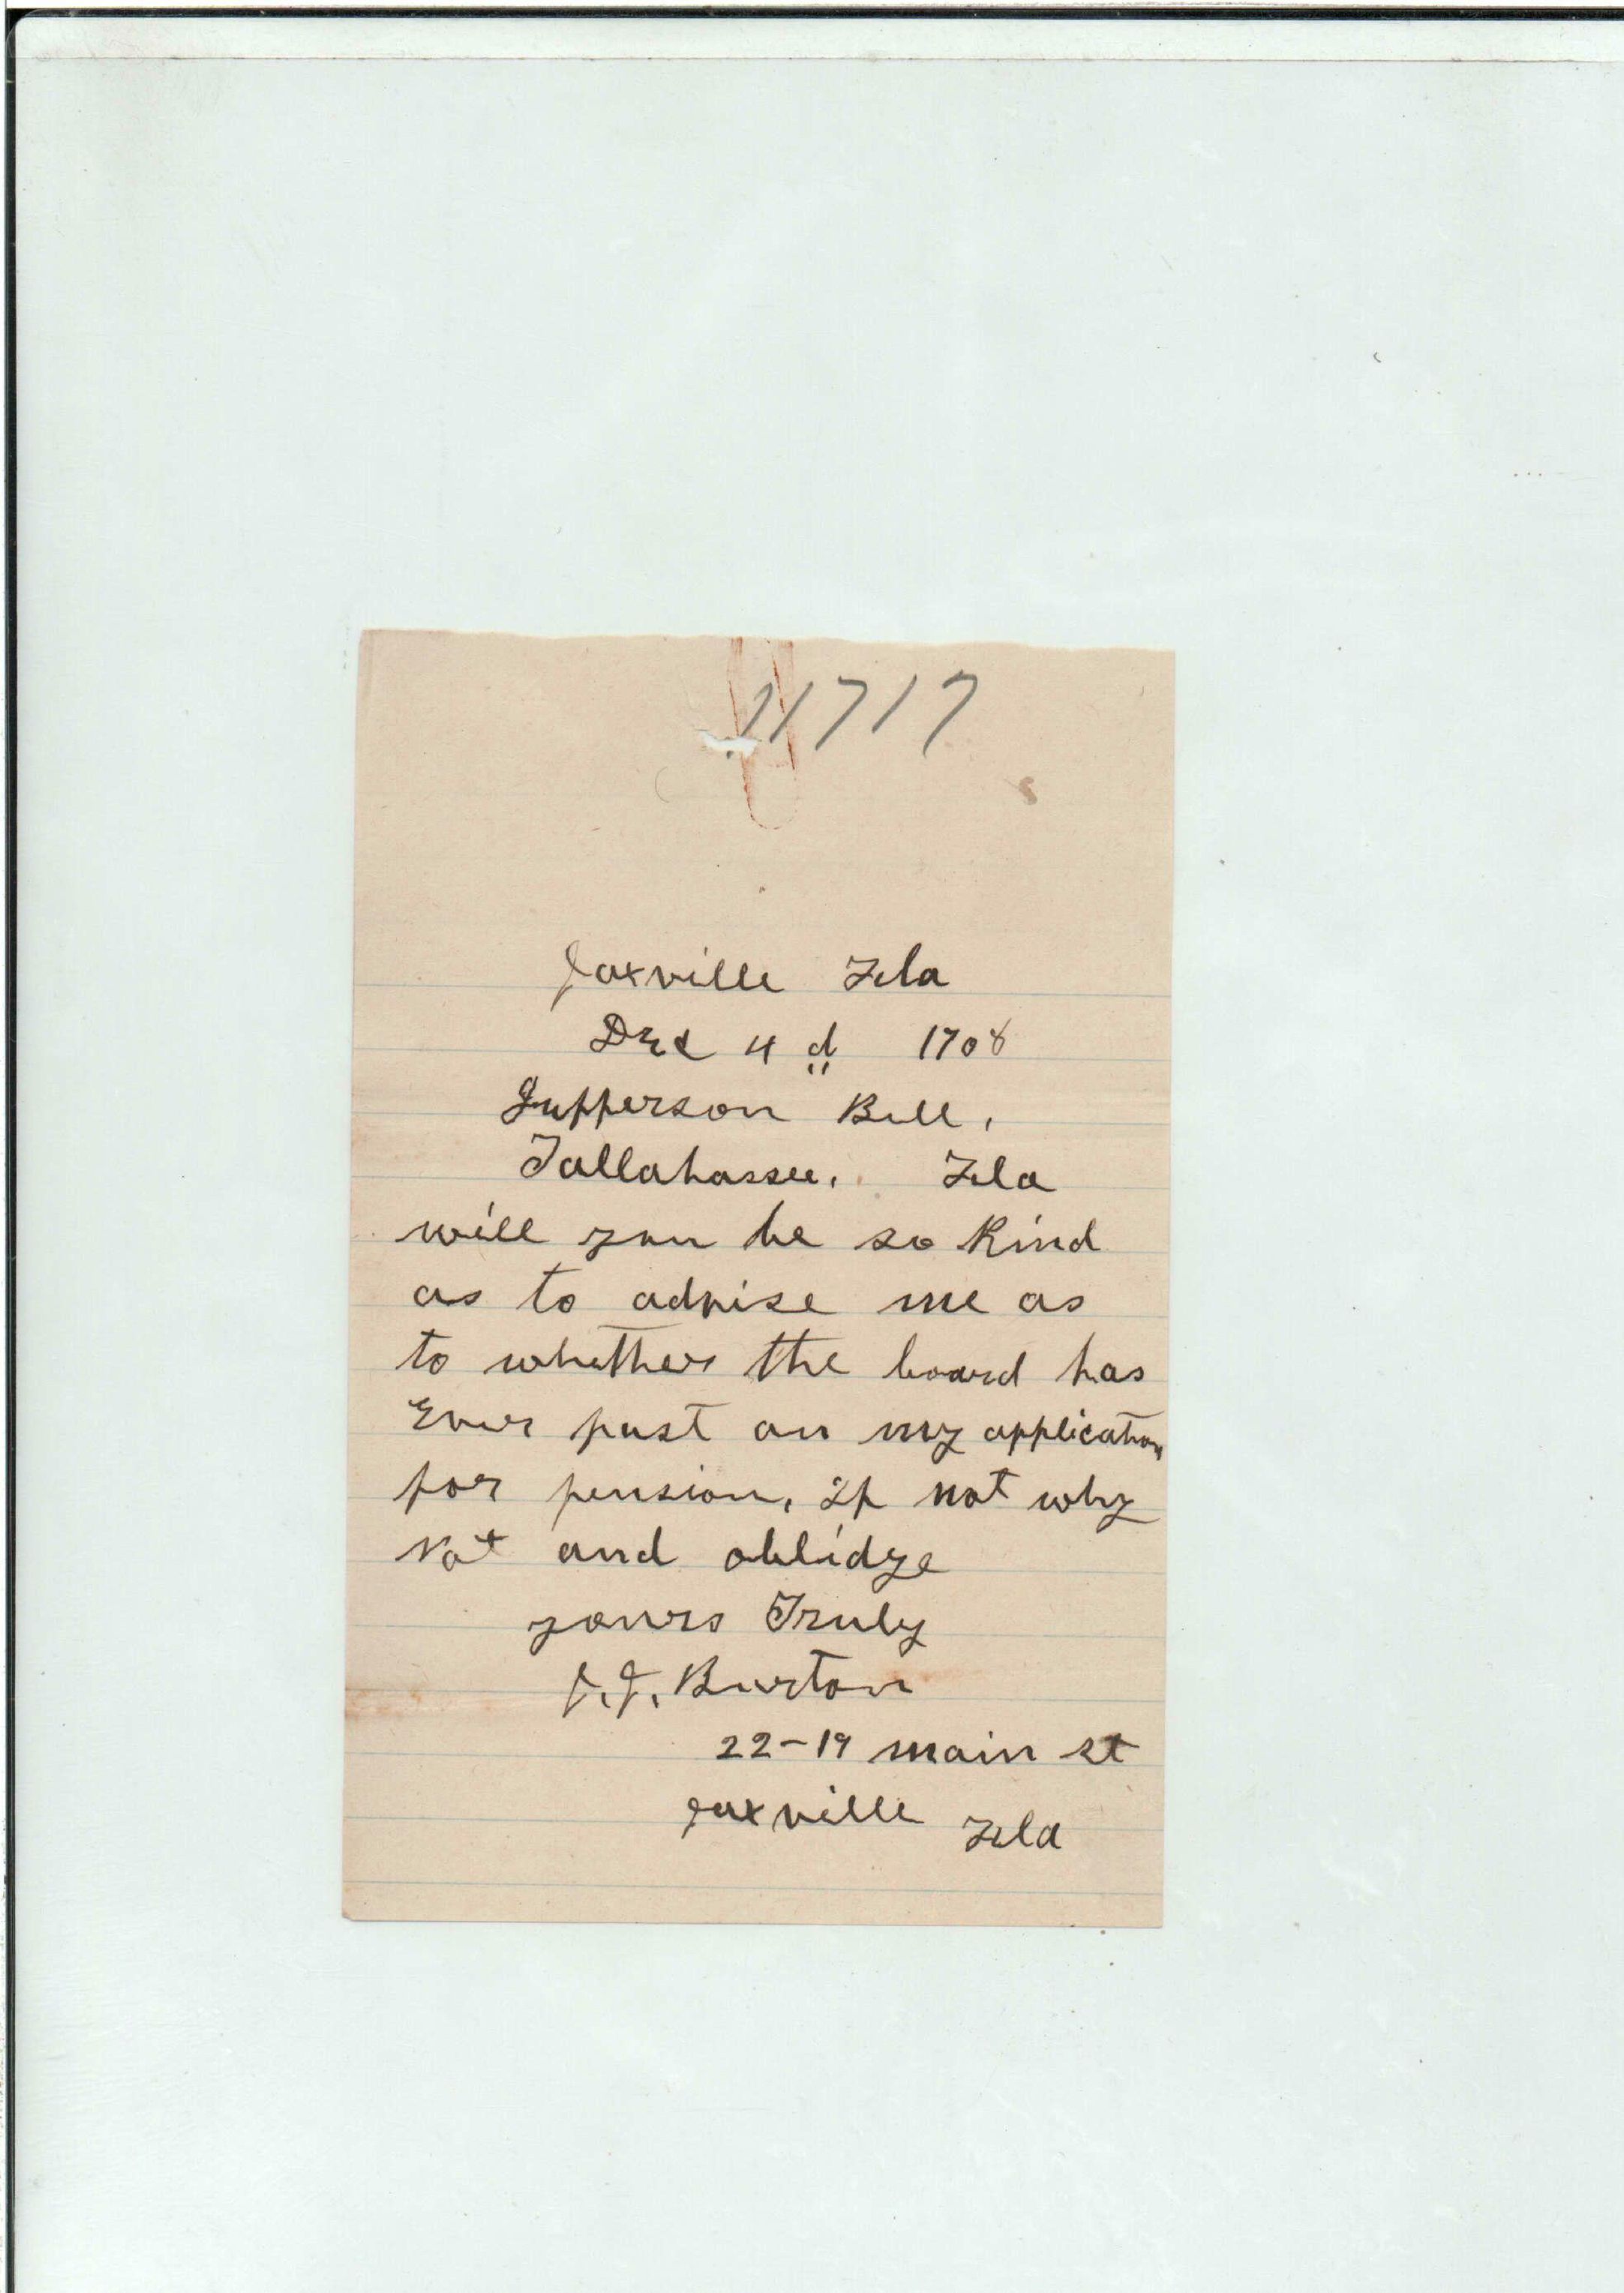 11717
Jaxville Fla
Dec 4 d 1908
Jefferson Bell,
Tallahassee, Fla
will you be so Kind
as to advise me as
to whether the board has
Ever past on my application
for pension, if not why
Not and oblidge
yours Truly
J. J. Burton
22-19 main st
Jaxville Fla